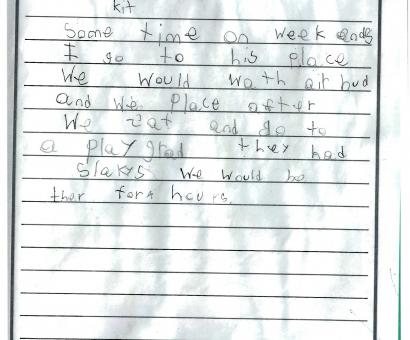 kit
Some time on week ends
I go to his place
We would wath air bud
and we place after
We eat and go to
a play grad they had
Slakys we would be
ther for 4 hours.